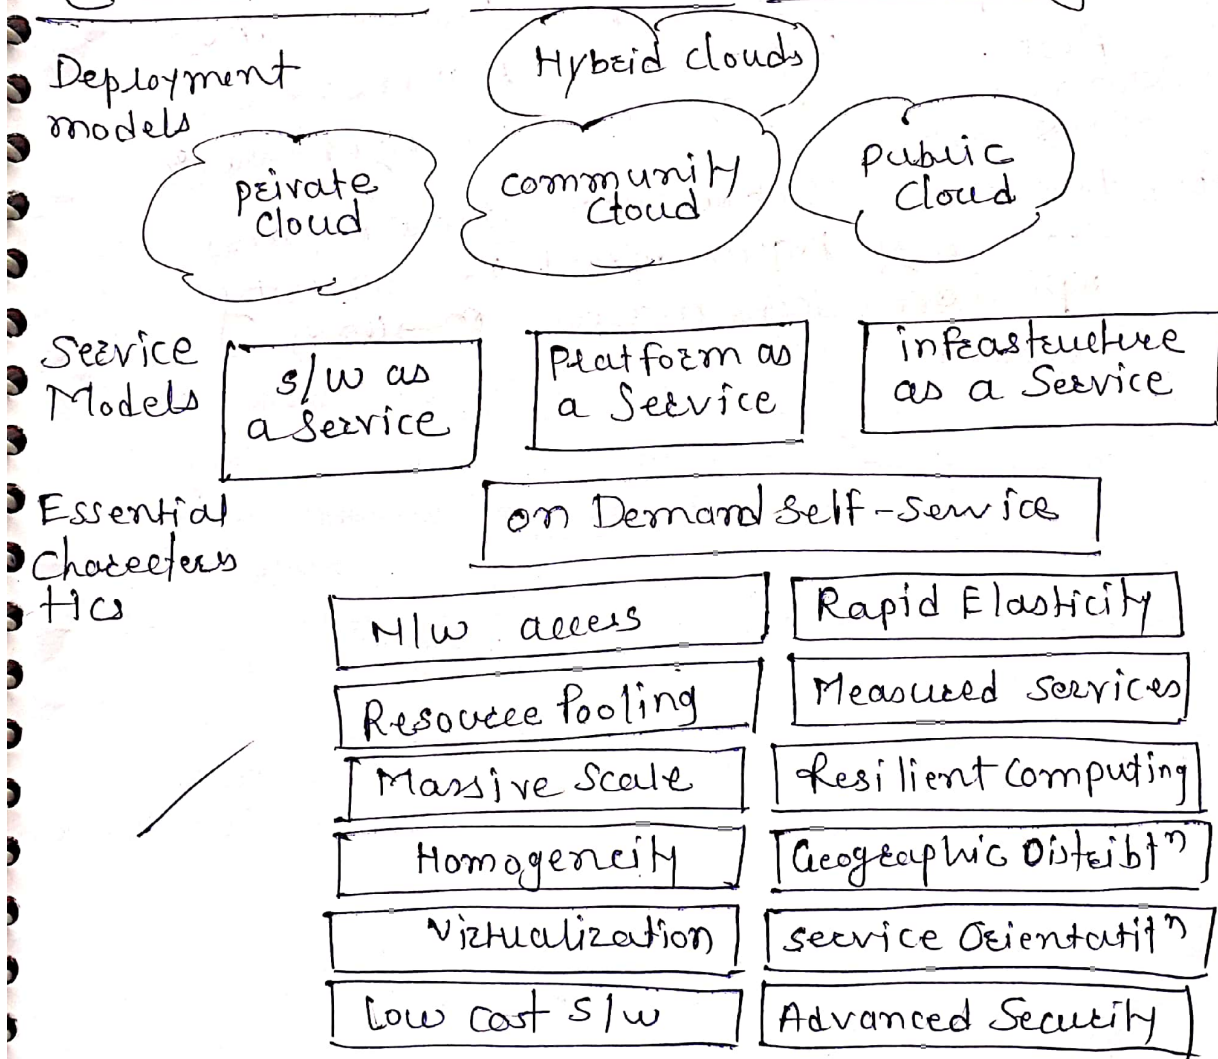 Deployment
models
Hybrid clouds
private
cloud
community
cloud
public
cloud
Service
Models
s/w as
a service
Platform as
a Service
infrastructure
as a Service
Essential
Charecters
tics
on Demand self-service
N/w access
Rapid Elasticity
Resource Pooling
Measured services
Massive Scale
Resilient computing
Homogeneity
Geographic Distribtn
Virtualization
service Orientatitn
Low cost s/w
Advanced Security